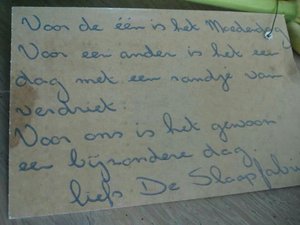 Voor de één is het Moederdag
Voor een ander is het een
dag met een randje van
verdriet.
Voor ons is het gewoon
een bijzondere dag.
liefs De Slaapfabri